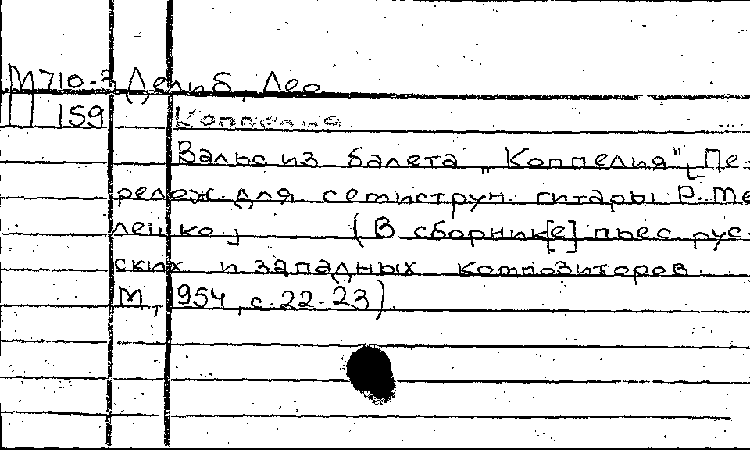 М710-3 Делиб, Лео
159 Коппелия
Вальс из балета „Коппелия“, Пе-
релож. для семиструн. гитары Р. Ме
лешко. (В сборник[е] пьес рус-
ских и западных композиторов.
М., 1954, с. 22-23).